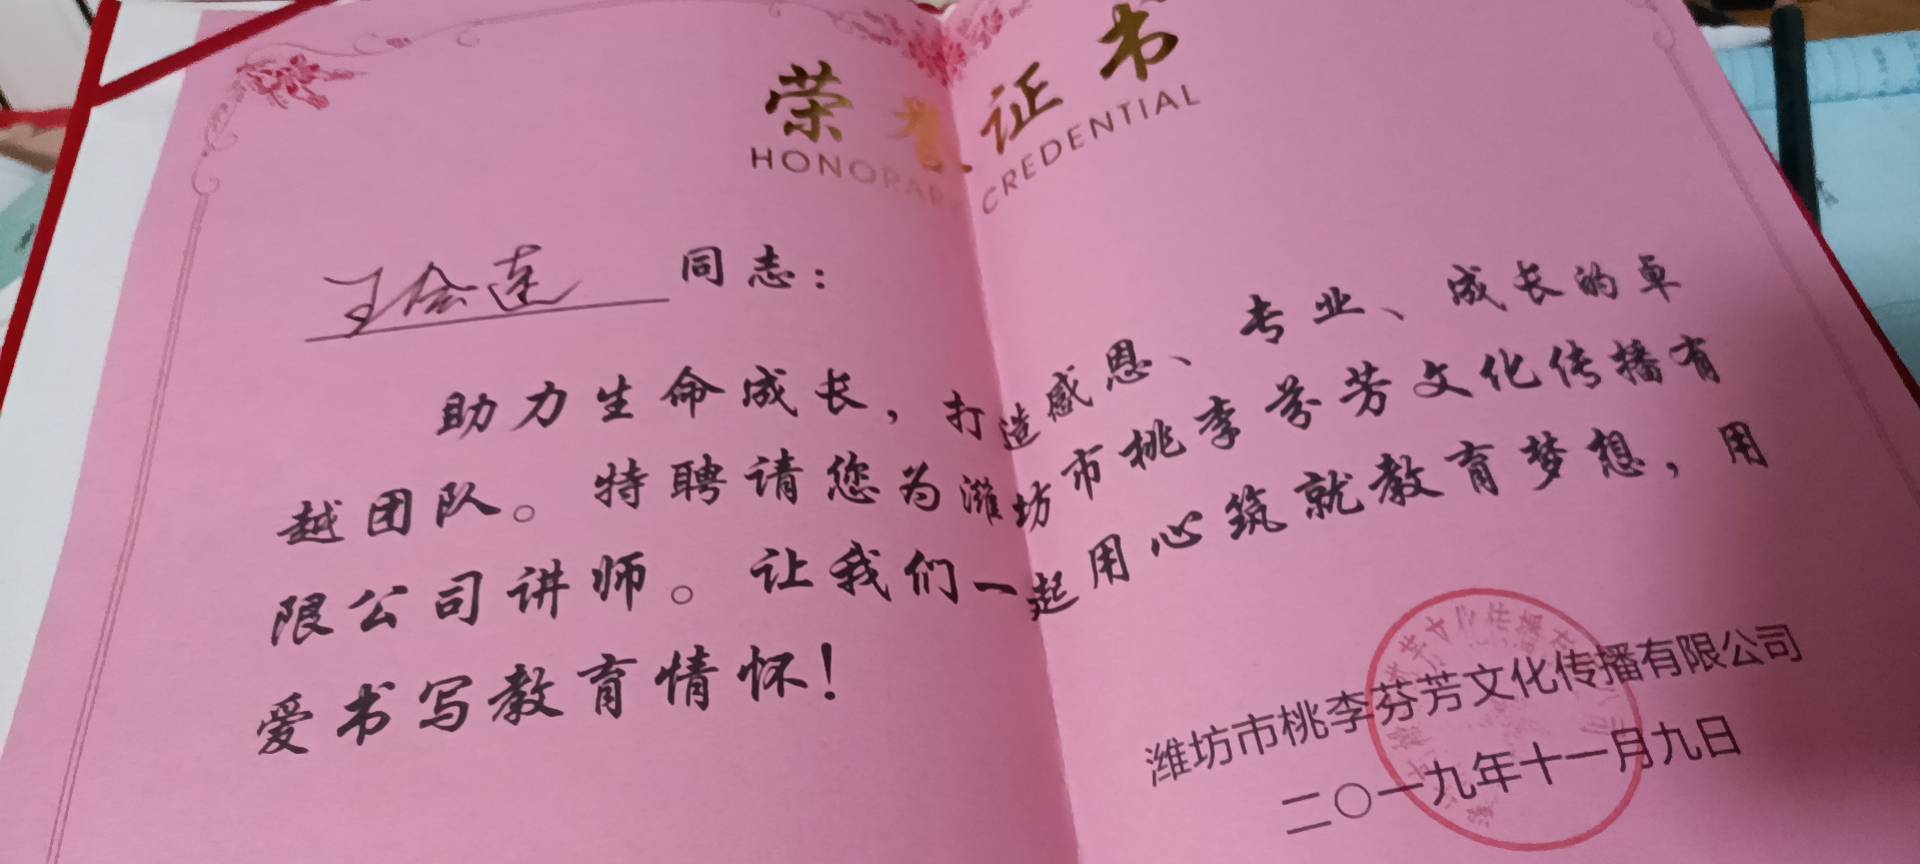 荣誉证书
HONORARY CREDENTIAL
王会莲 同志：
助力生命成长，打造感恩、专业、成长的卓
越团队。特聘请您为潍坊市桃李芬芳文化传播有
限公司讲师。让我们一起用心筑就教育梦想，用
爱书写教育情怀！
潍坊市桃李芬芳文化传播有限公司
二〇一九年十一月九日